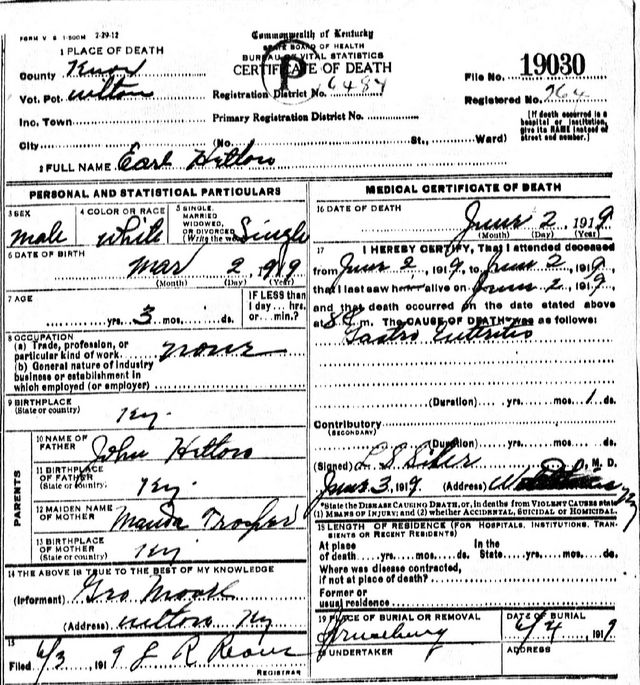 FORM V S 1-500M 2-29-12
Commonwealth of Kentucky
STATE BOARD OF HEALTH
BUREAU OF VITAL STATISTICS
CERTIFICATE OF DEATH
1 PLACE OF DEATH
County Knox
Vot. Pct. Wilton
Inc. Town
City
Registration District No. 6484
Primary Registration District No.
(No. St., Ward)
File No. 19030
Registered No. 764
[If death occurred in a hospital or institution, give its NAME instead of street and number.]
2 FULL NAME Earl
PERSONAL AND STATISTICAL PARTICULARS
3 SEX male
4 COLOR OR RACE white
5 SINGLE, MARRIED WIDOWED, OR DIVORCED (Write the word) Single
6 DATE OF BIRTH
Mar 2, 1919
(Month) (Day) (Year)
7 AGE
yrs. 3 mos. ds.
IF LESS than 1 day ... hrs. or ... min.?
8 OCCUPATION
(a) Trade, profession, or particular kind of work none
(b) General nature of industry business or establishment in which employed (or employer)
9 BIRTHPLACE
(State or country) Ky.
PARENTS
10 NAME OF FATHER John
11 BIRTHPLACE OF FATHER (State or country) Ky
12 MAIDEN NAME OF MOTHER
13 BIRTHPLACE OF MOTHER (State or country) Ky
14 THE ABOVE IS TRUE TO THE BEST OF MY KNOWLEDGE
(Informant) Geo Moore
(Address) Wilton Ky
15
Filed 6/3, 1919 J R
REGISTRAR
MEDICAL CERTIFICATE OF DEATH
16 DATE OF DEATH
June 2, 1919
(Month) (Day) (Year)
17 I HEREBY CERTIFY, That I attended deceased
from June 2, 1919, to June 2, 1919,
that I last saw alive on June 2, 1919
and that death occurred on the date stated above
at m. The CAUSE OF DEATH was as follows:
Gastro Enteritis
(Duration) yrs. mos. 1 ds.
Contributory
(SECONDARY)
(Duration) yrs. mos. ds.
(Signed) L S Siler, M. D.
June 3, 1919. (Address)
*State the DISEASE CAUSING DEATH, or, in deaths from VIOLENT CAUSES state (1) MEANS OF INJURY; and (2) whether ACCIDENTAL, SUICIDAL or HOMICIDAL.
18 LENGTH OF RESIDENCE (FOR HOSPITALS, INSTITUTIONS, TRANSIENTS OR RECENT RESIDENTS)
At place of death yrs. mos. ds. In the State yrs. mos. ds.
Where was disease contracted, if not at place of death?
Former or usual residence
19 PLACE OF BURIAL OR REMOVAL
DATE OF BURIAL
6/4, 1919
20 UNDERTAKER
ADDRESS